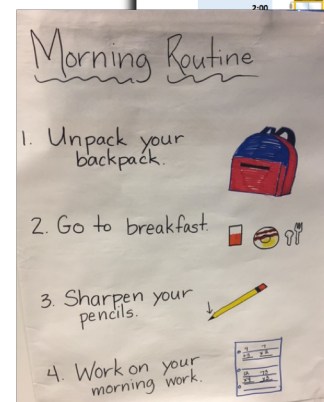 2:00
Morning Routine
1. Unpack your
backpack.
2. Go to breakfast.
3. Sharpen your
pencils.
4. Work on your
morning work.